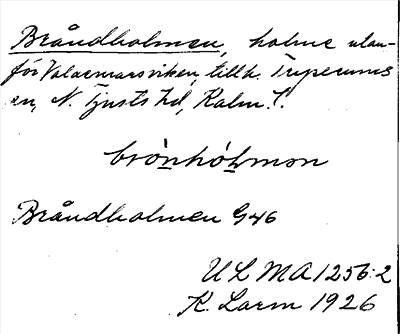 Bråndholmen, holme utan-
för Valdemarsviken, tillh.
en, N. Tjusts hd, Kalm. l.
brò̱nhòḻmən
Bråndholmen G46
ULMA 1256:2
K. Larm 1926